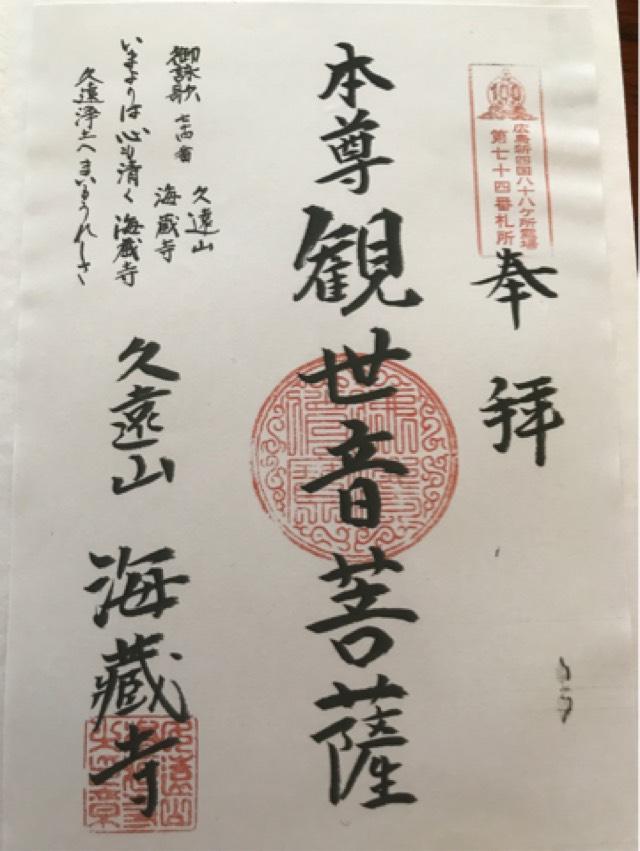 100
広島新四国八十八ケ所霊場
第七十四番札所
奉拝
本尊観世音菩薩
久遠山
海蔵寺
御詠歌 七十四番
久遠山
海蔵寺
いまよりは心も清く海蔵寺
久遠浄土へまいるうれしさ